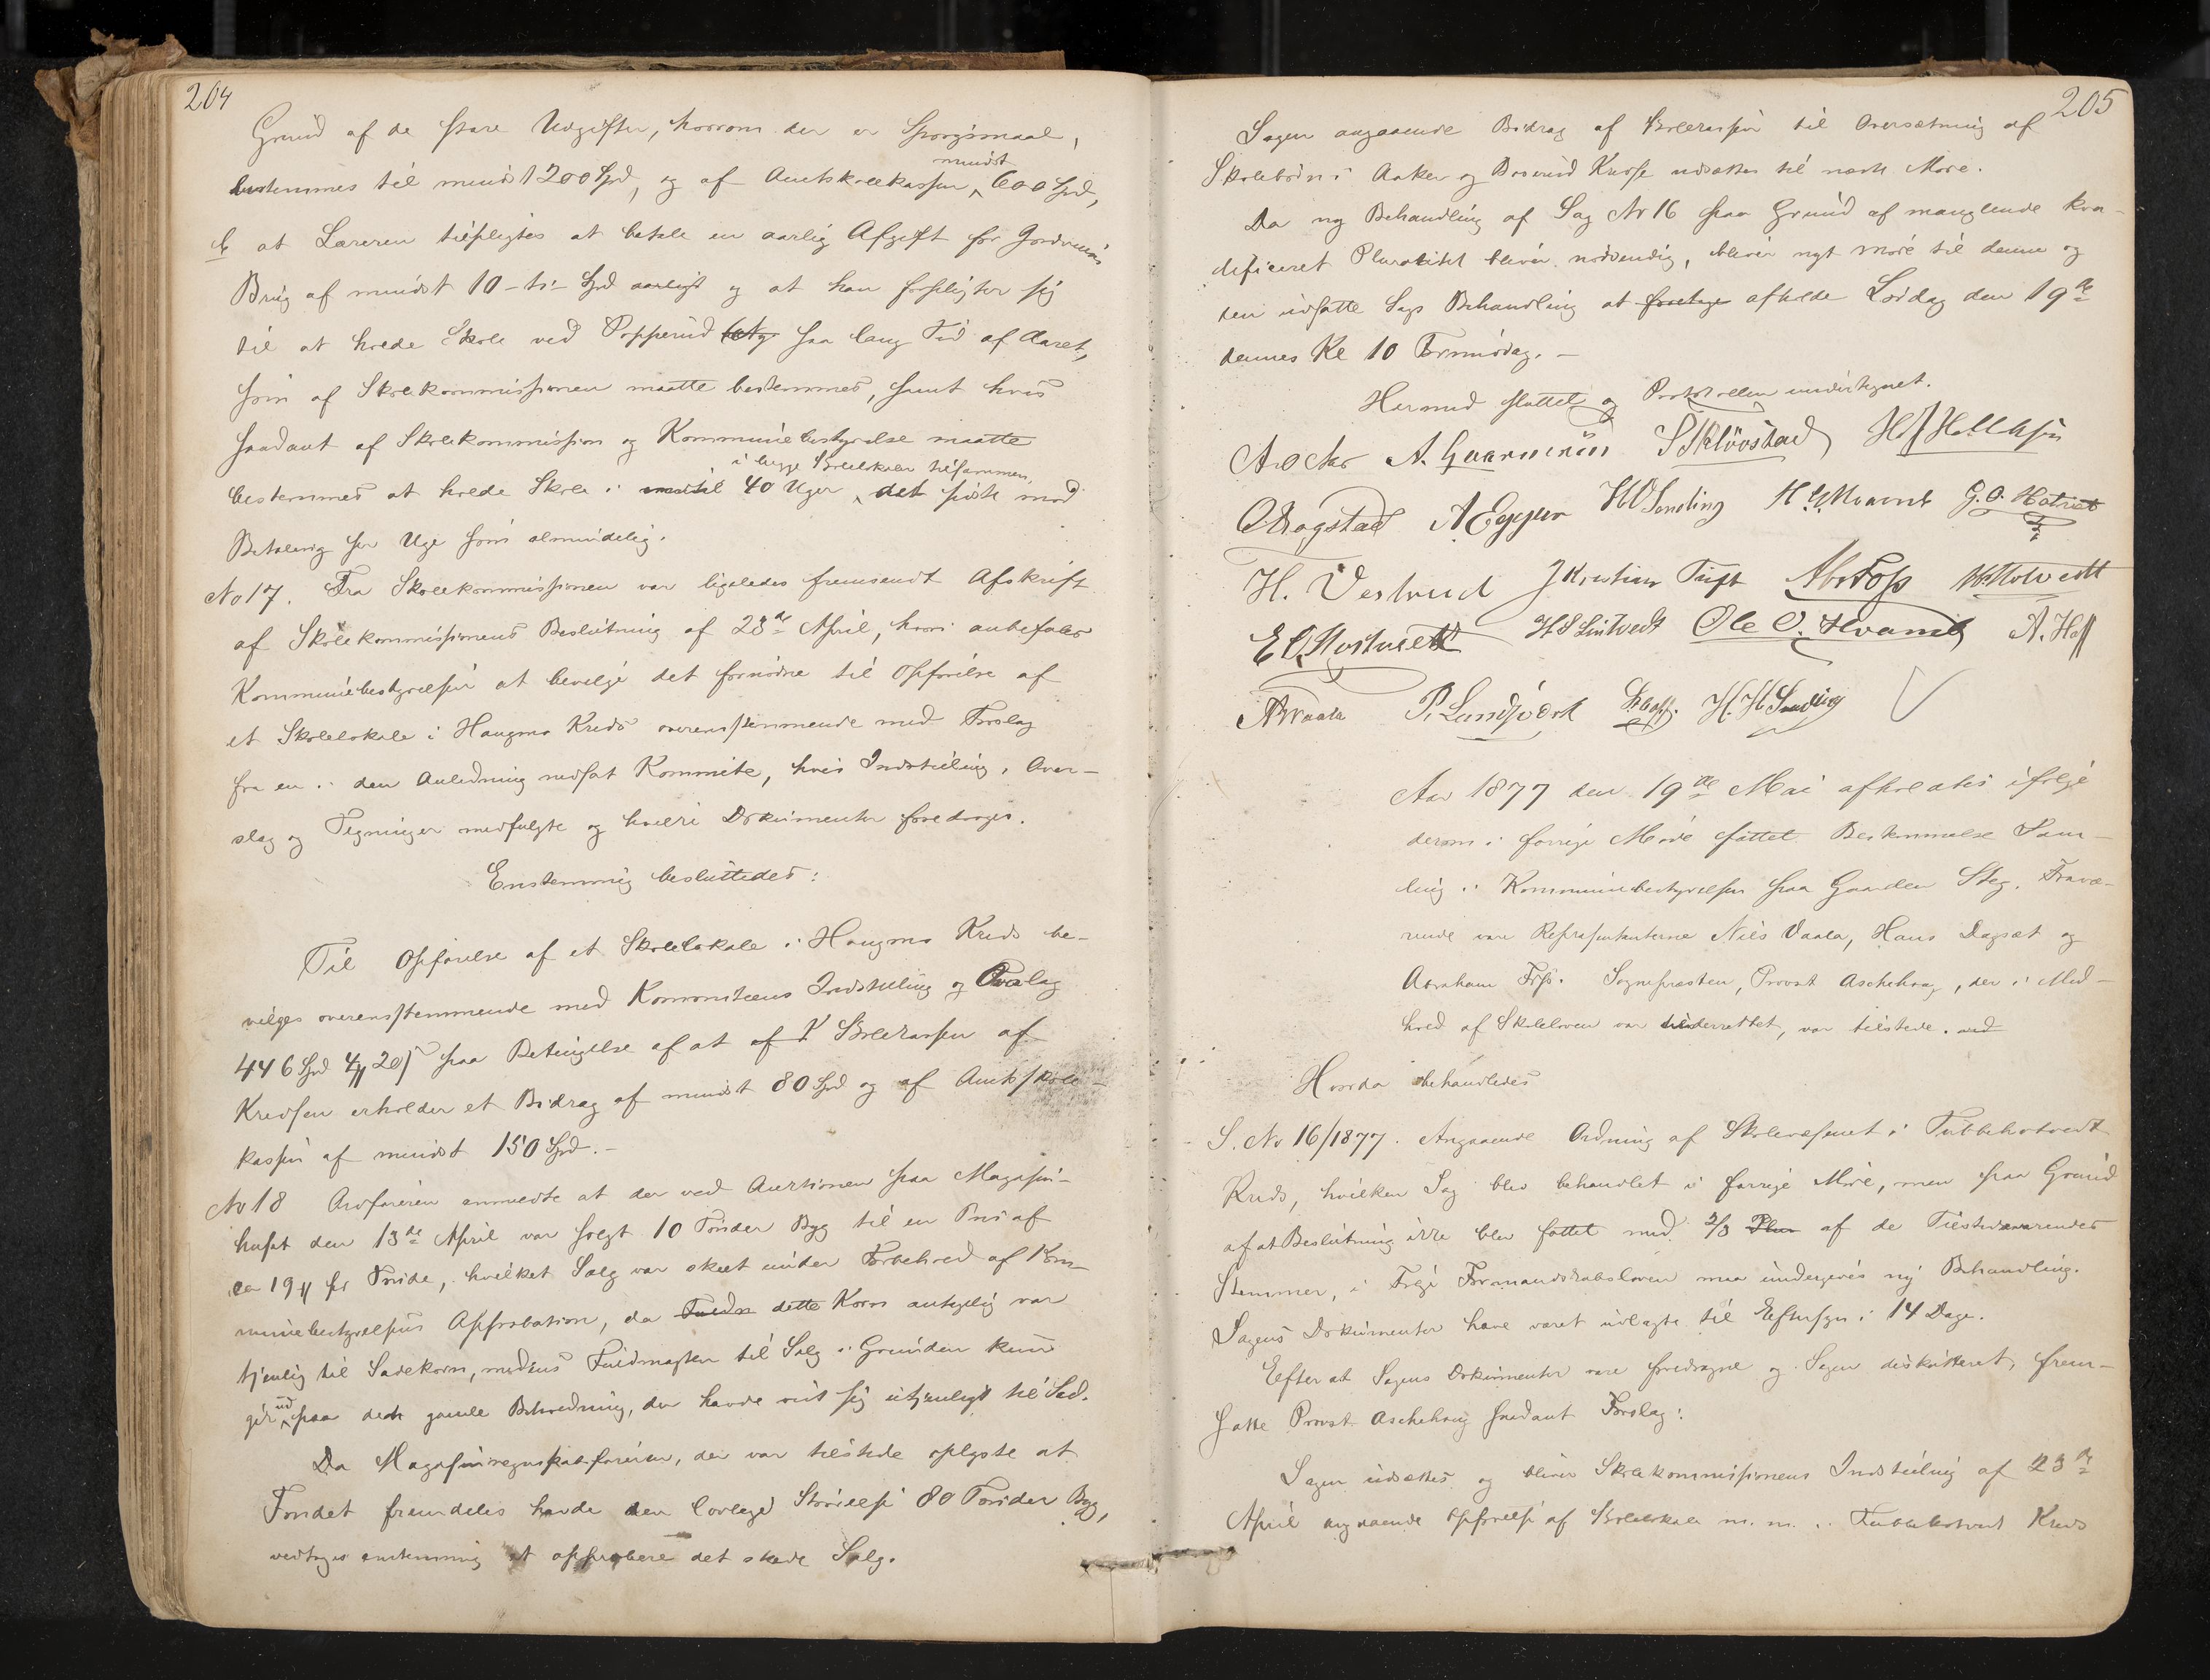 204
Grund af de store Udgifter, hvorom der er Spørgsmaal,
bestemmes til mindst 200 Spd, og af Amtsskolekassen mindst 600 Spd,
b at Læreren tilpligtes at betale en aarlig Afgift for Jordveiens
Brug af mindst 10 - ti - Spd aarligt og at han forpligter sig
til at holde Skole ved Popperud saa lang Tid af Aaret,
som af Skolekommissionen maatte bestemmes, samt hvis
saadant af Skolekommission og Kommunebestyrelse maatte
bestemmes at holde Skole i indtil 40 Uger i begge Skolelokaler tilsammen, det sidste mod
Betaling per Uge som almindelig.
No 17. Fra Skolekommissionen var ligeledes fremsendt Afskrift
af Skolekommissionens Beslutning af 23de April, hvori anbefales
Kommunebestyrelsen at bevilge det fornødne til Opførelse af
et Skolelokale i Haugmo Kreds overensstemmende med Forslag
fra en i den Anledning nedsat Kommite, hvis Indstilling, Over-
slag og Tegninger medfulgte og hvilke Dokumenter foredroges.
Enstemmig besluttedes:
Til Opførelse af et Skolelokale i Haugmo Kreds be-
vilges overensstemmende med Kommiteens Indstilling og Overslag
446 Spd 4 20 paa Betingelse af at af Skolekassen af
Kredsen erholder et Bidrag af mindst 80 Spd og af Amtsskole-
kassen af mindst 150 Spd. -
No 18 Ordføreren anmeldte at der ved Auktionen paa Magasin-
huset den 13de April var solgt 10 Tønder Byg til en Pris af
ca 19 pr Tønde, hvilket Salg var skeet under Forbehold af Kom-
munebestyrelsens Approbation, da dette Korn antagelig var
tjenlig til Sædekorn, medens Fuldmagten til Salg i Grunden kun
gik ud paa den gamle Beholdning, der havde vist sig utjenligt til Sæd.
Da Magasinregnskabsføreren, der var tilstede oplyste at
Fondet fremdeles havde den lovlige Størrelse 80 Tønder Byg,
vedtoges enstemmig at approbere det skede Salg.
205
Sagen angaaende Bidrag af Skolekassen til Oversætning af
Skolebørn i Aaker og Kredse udsættes til næste Møde.
Da ny Behandling af Sag No 16 paa Grund af manglende kva-
lificeret Pluralitet bliver nødvendig, bliver nyt Møde til denne og
den udsatte Sags Behandling at foretage afholde Lørdag den 19de
dennes Kl 10 Formiddag. -
Hermed sluttet og Protokollen undertegnet.
A. Gaarderson S Kløvstad
ORogstad A Eggen HOSendling G. O.
H. Vestrud J Kristian Tufte AbrFoss
H S Lintvedt Ole O. Hvamb A. Hoff
NVaala P. Lundqvest H. H Sendling
Aar 1877 den 19de Mai afholdtes ifølge
derom i forrige Møde fattet Bestemmelse Sam-
ling i Kommunebestyrelsen paa Gaarden Steg. Fravæ-
rende vare Repræsentanterne Nils Vaala, Hans Dagsæt og
Abraham Foss. Sognepræsten, Provst Aschehoug, der i Med-
hold af Skoleloven var underrettet, var tilstede. ved
Hvorda behandledes
S. No 16/1877. Angaaende Ordning af Skolevæsenet i Tubbehotvedt
Kreds, hvilken Sag blev behandlet i forrige Møde, men paa Grund
af at Beslutning ikke blev fattet med 2/3 Plur af de Tilstedeværendes
Stemmer, i Følge Formandskabsloven maa undergives ny Behandling.
Sagens Dokumenter have været udlagte til Eftersyn i 14 Dage.
Efter at Sagens Dokumenter vare foredragne og Sagen diskuteret, frem-
satte Provst Aschehoug saadant Forslag:
Sagen udsættes og bliver Skolekommissionens Indstilling af 23de
April angaaende Opførelse af Skolelokale m. m. i Tubbehotvedt Kreds